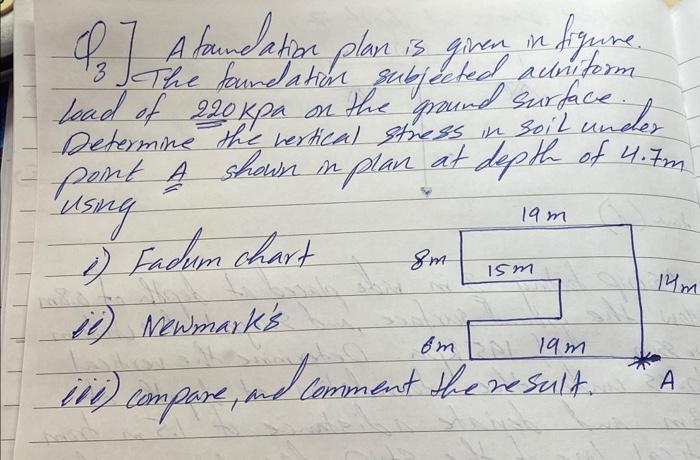 Q3] A foundation plan is given in figure.
The foundation subjected a uniform
load of 220 kpa on the ground surface.
Determine the vertical stress in soil under
point A shown in plan at depth of 4.7m
using
19 m
i) Fadum chart
8m
15m
14m
ii) Newmark's
6m
19m
A
iii) compare, and comment the result.